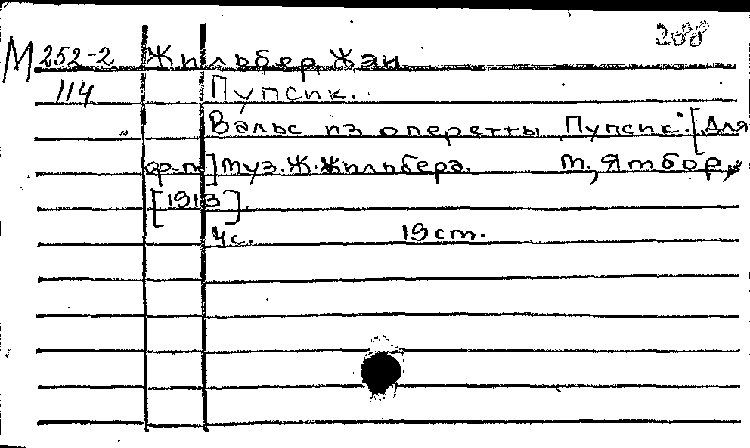 200
М 252-2 Жильбер, Жан
114 Пупсик.
Вальс из оперетты "Пупсик". [Для
ф.-п.] Муз. Ж. Жильбера. М., Ямбор,
[1913].
4 с. 19 cm.